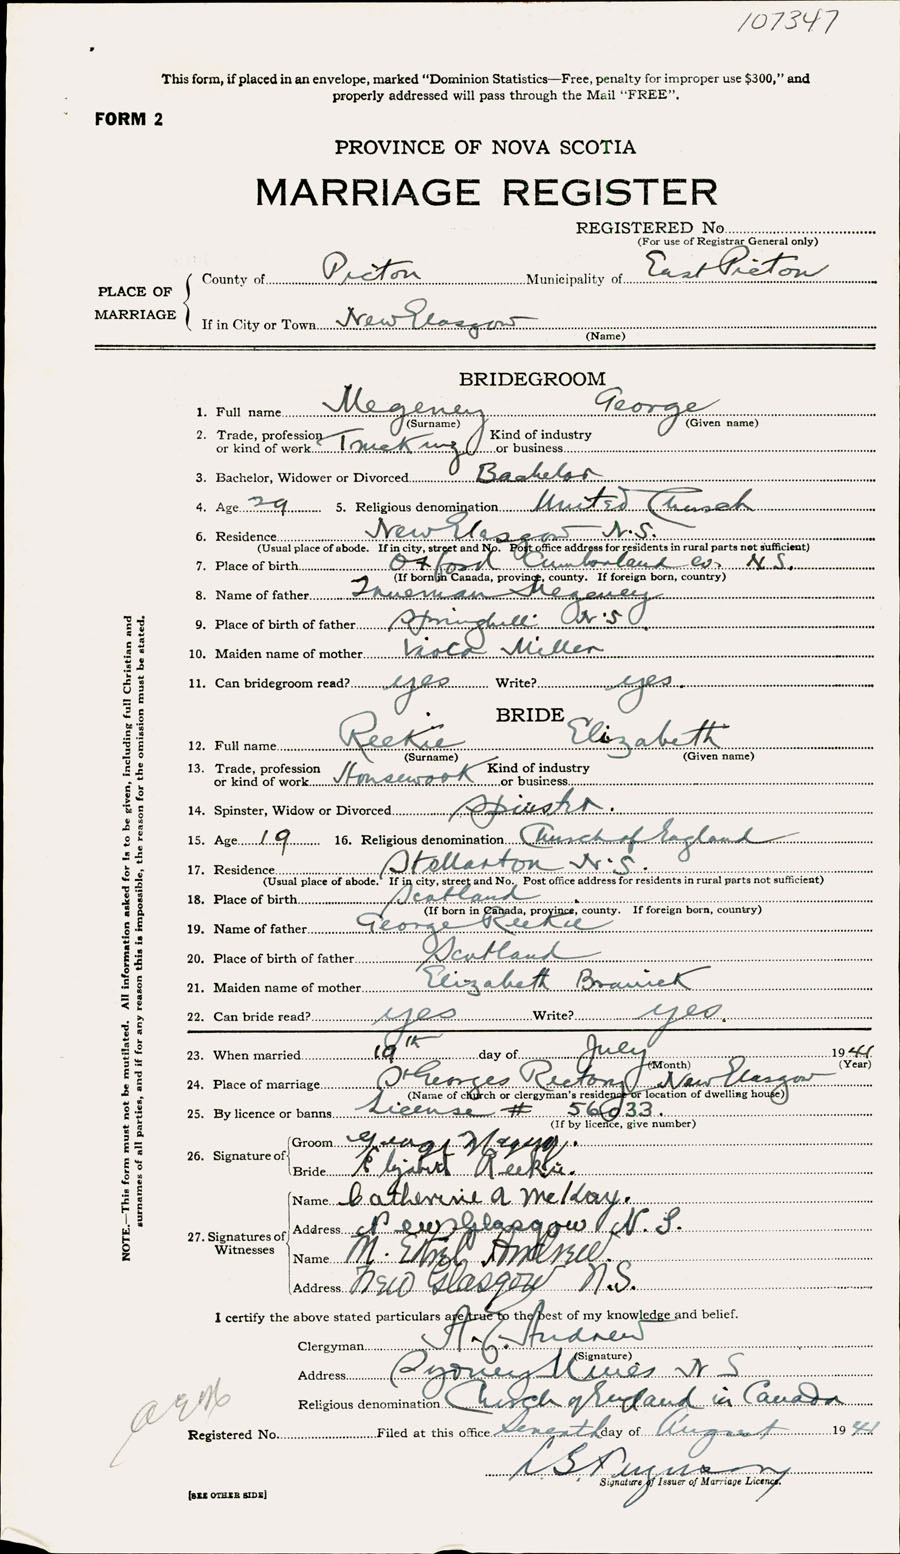 107347
This form, if placed in an envelope, marked "Dominion Statistics—Free, penalty for improper use $300," and
properly addressed will pass through the Mail "FREE".
FORM 2
PROVINCE OF NOVA SCOTIA
MARRIAGE REGISTER
REGISTERED No.
(For use of Registrar General only)
PLACE OF MARRIAGE
County of Pictou Municipality of East Pictou
If in City or Town New Glasgow
(Name)
BRIDEGROOM
1. Full name Megeney George
(Surname) (Given name)
2. Trade, profession or kind of work Trucking Kind of industry or business
3. Bachelor, Widower or Divorced Bachelor
4. Age 29 5. Religious denomination United Church
6. Residence New Glasgow N.S.
(Usual place of abode. If in city, street and No. Post office address for residents in rural parts not sufficient)
7. Place of birth Oxford Cumberland co. N.S.
(If born in Canada, province, county. If foreign born, country)
8. Name of father Trueman Megeney
9. Place of birth of father Springhill N.S.
10. Maiden name of mother Viola Miller
11. Can bridegroom read? yes Write? yes.
BRIDE
12. Full name Reekie Elizabeth
(Surname) (Given name)
13. Trade, profession or kind of work Housework Kind of industry or business
14. Spinster, Widow or Divorced Spinster.
15. Age 19 16. Religious denomination Church of England
17. Residence Stellarton N.S.
(Usual place of abode. If in city, street and No. Post office address for residents in rural parts not sufficient)
18. Place of birth Scotland
(If born in Canada, province, county. If foreign born, country)
19. Name of father George Reekie
20. Place of birth of father Scotland
21. Maiden name of mother Elizabeth
22. Can bride read? yes Write? yes.
23. When married 19th day of July 1941
(Month) (Year)
24. Place of marriage St Georges Rectory New Glasgow
(Name of church or clergyman's residence or location of dwelling house)
25. By licence or banns License # 56033.
(If by licence, give number)
26. Signature of
Groom George Megeney.
Bride Elizabeth Reekie.
27. Signatures of Witnesses
Name Catherine A McKay.
Address New Glasgow N.S.
Name M. Ethel Andrew
Address New Glasgow N.S.
I certify the above stated particulars are true to the best of my knowledge and belief.
Clergyman A. E. Andrew
(Signature)
Address Sydney Mines N S
Religious denomination Church of England in Canada
Registered No. Filed at this office Seventh day of August 1941
Ferguson
Signature of Issuer of Marriage Licence.
[SEE OTHER SIDE]
NOTE.—This form must not be mutilated. All information asked for is to be given, including full Christian and
surnames of all parties, and if for any reason this is impossible, the reason for the omission must be stated.